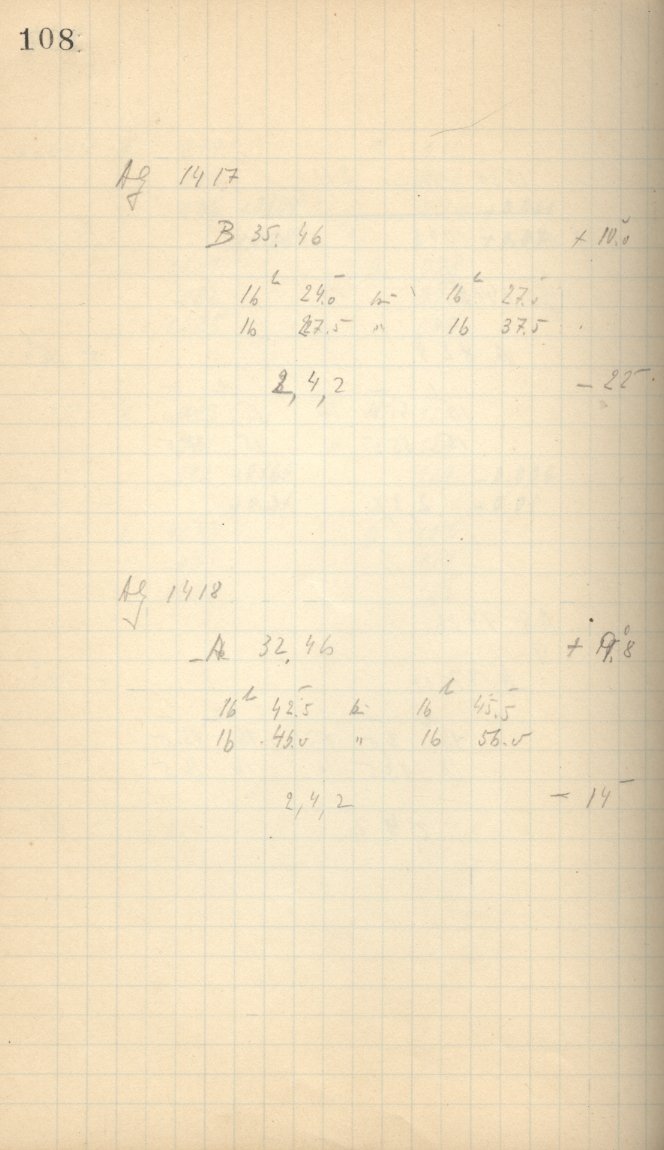 108
Ag 1417
B 35.46 + 10.0
16h 24.0 bis 16h 27.0
16 27.5 " 16 37.5
2,4,2 - 22
Ag 1418
A 32.46 + 9.8
16h 42.5 bis 16h 45.5
16 46.0 " 16 56.0
2,4,2 - 14